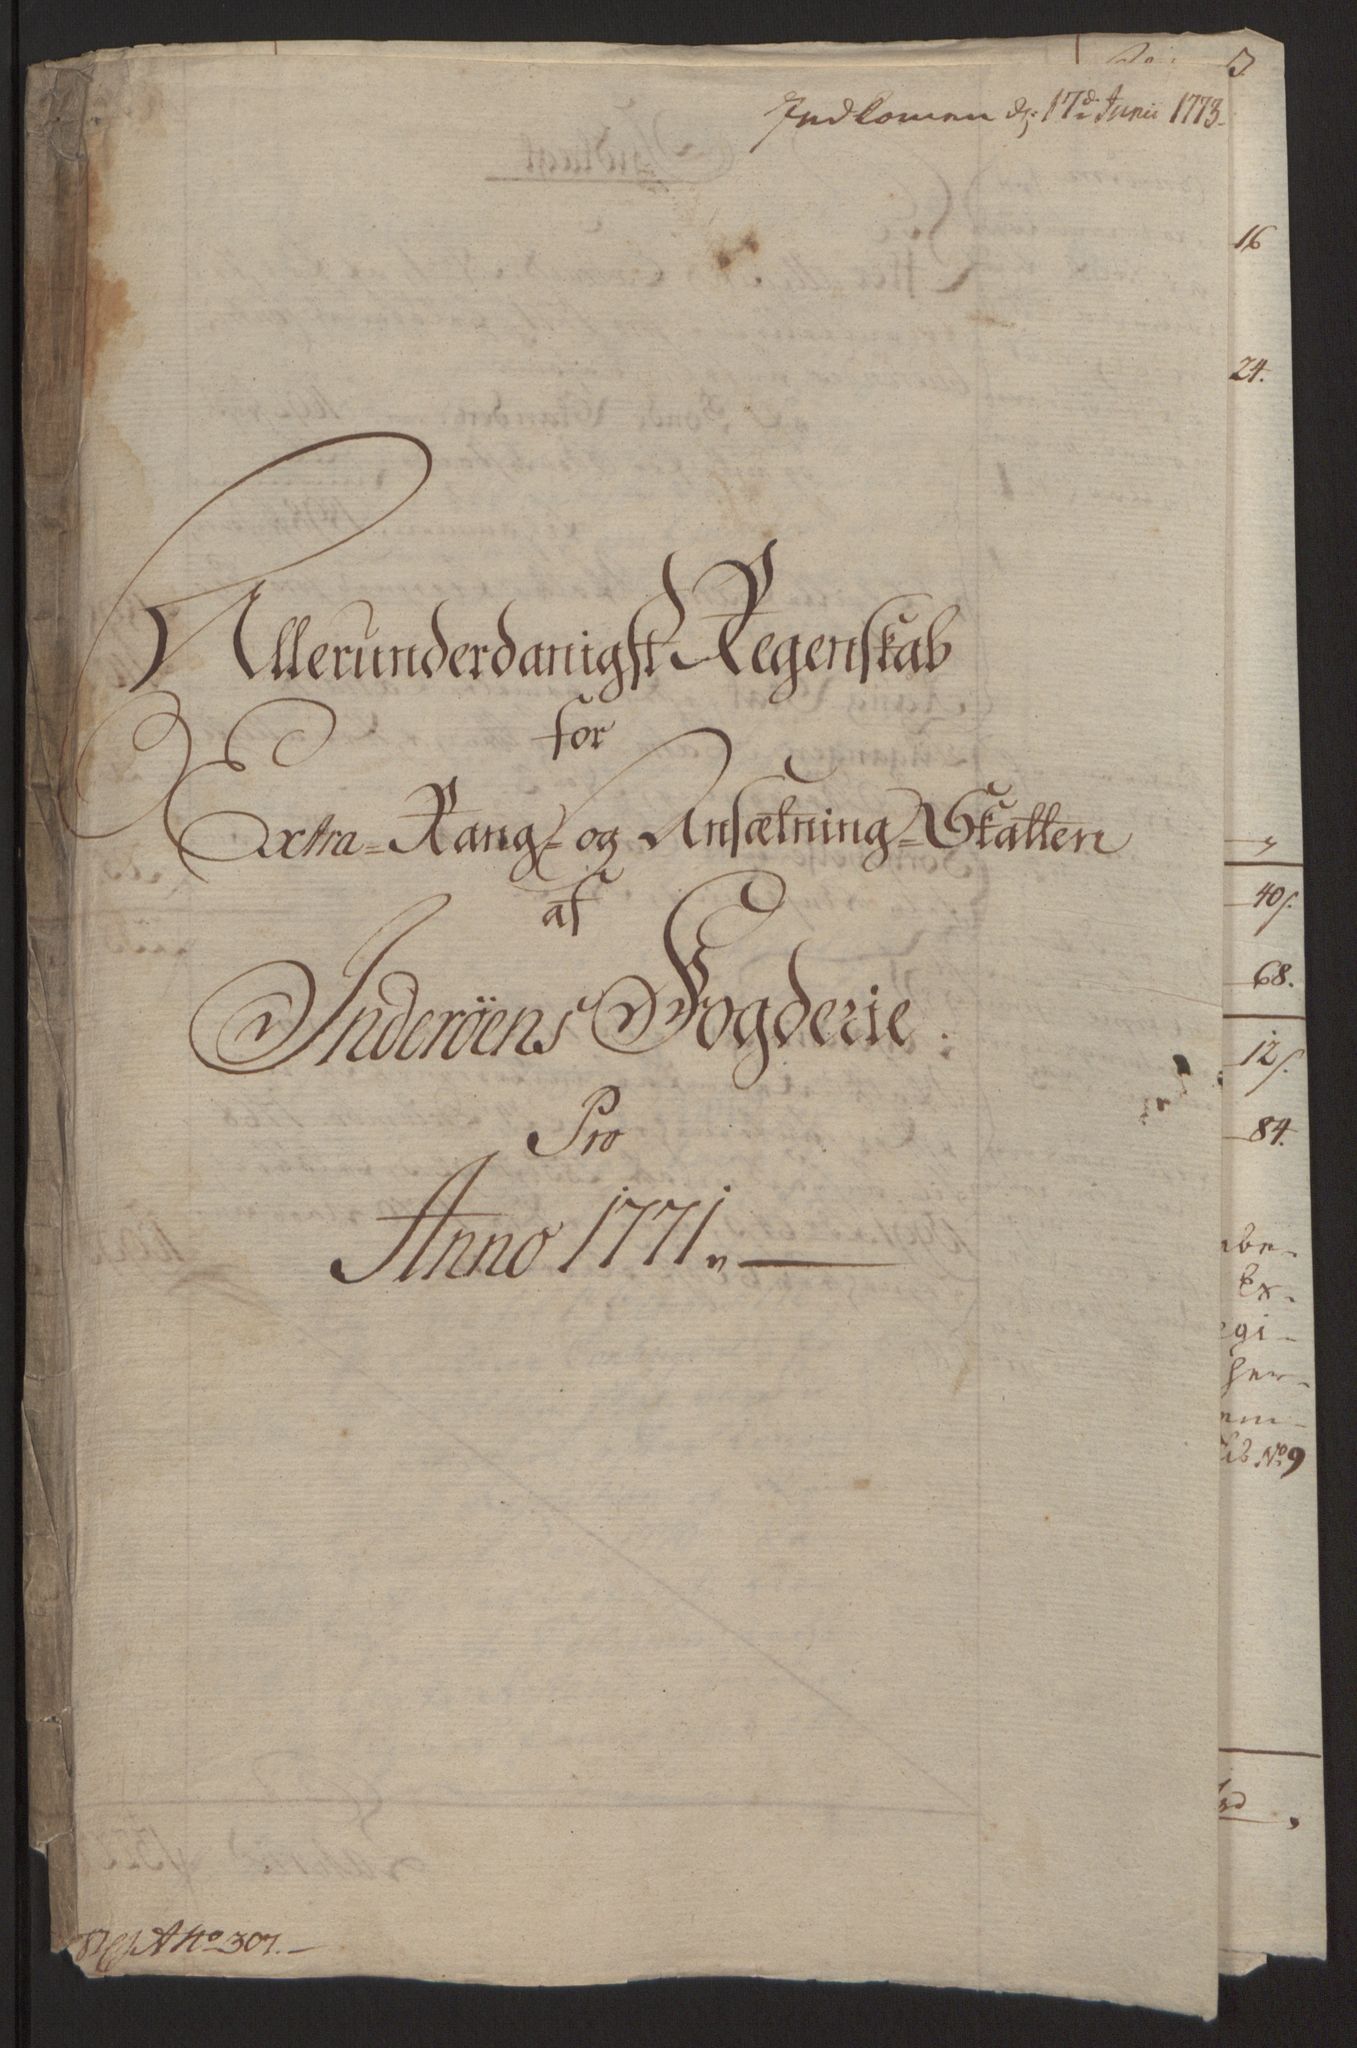 Indkomen d: 17d Junii 1773.
16
24.
Allerunderdanigst Regenskab
for
Extra-Rang- og Ansætning-Skatten
af
Inderöens Fogderie.
Pro
Anno 1771.
40 s.
68.
12 s.
84.
No 9
No 307.